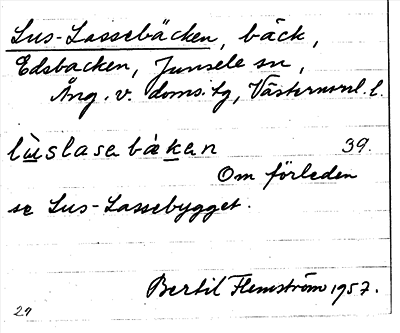 Lus-Lassebäcken, bäck,
Edsbacken, Junsele sn,
Ång. v. doms:g, Västernorrl. l.
lùslasebäken 39.
Om förleden
se Lus-Lassebygget.
Bertil Flemström 1957.
29